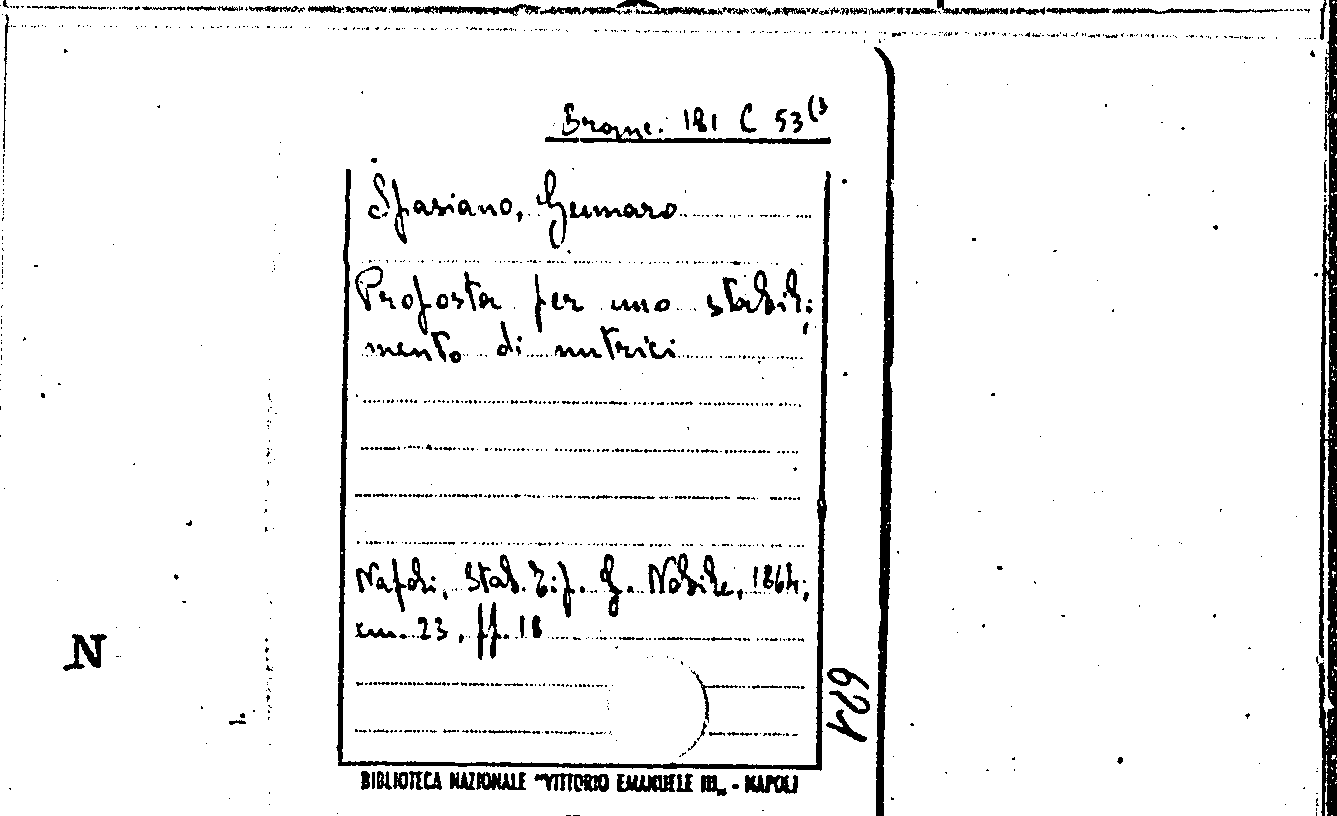 Branc. 181 C 53(3
Spasiano, Gennaro
Proposta per uno stabili
mento di nutrici
Napoli, Stab. Tip. G. Nobile, 1864;
cm. 23, pp. 18
N
621
BIBLIOTECA NAZIONALE "VITTORIO EMANUELE III„ - NAPOLI